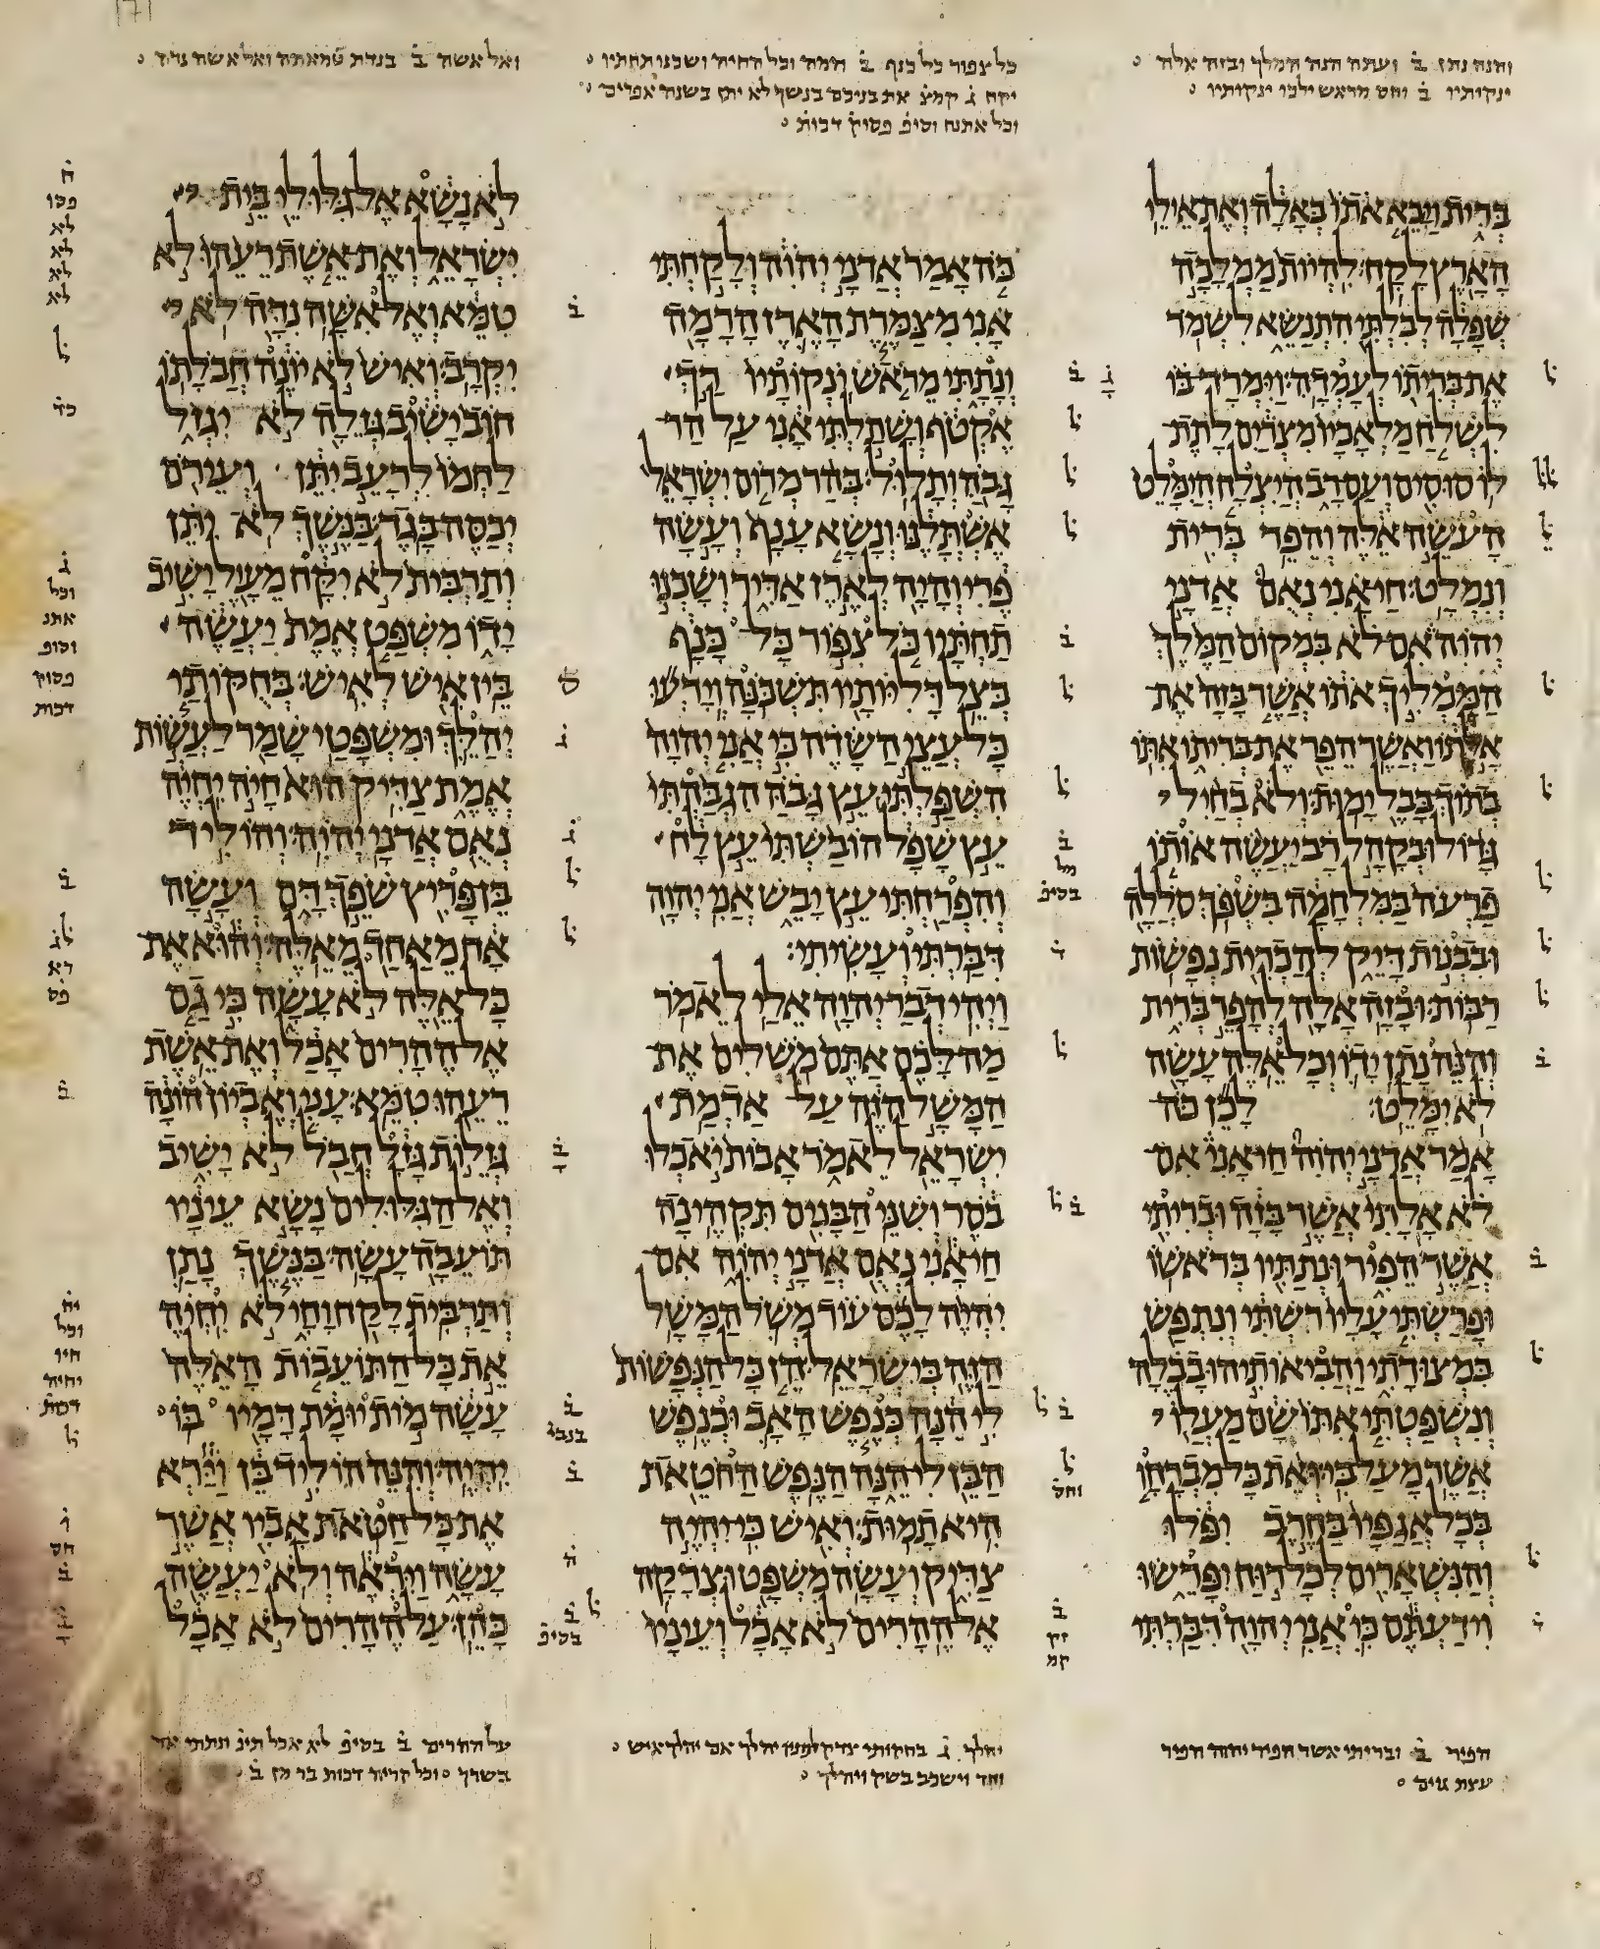 והנה נתן ב ועתה הנה המלך ובזה אלה
ינקותיו ב וחס מראש ינקותיו
כל צפור כל כנף ב וכל החיה ושכנו תחתיו
יקח ג קמצ את בניכם בנשך לא יתן בשנה אפרים
וכל אתנח וסופ פסוק דכות
ואל אשה ב בנדת טמאתה ואל אשה נדה
ברית ויבא אתו באלה ואת אילי
הארץ לקח׃ להיות ממלכה
שפלה לבלתי התנשא לשמר
את בריתו לעמדה׃ וימרד בו
לשלח מלאכיו מצרים לתת
לו סוסים ועם רב היצלח הימלט
העשה אלה והפר ברית
ונמלט׃ חי אני נאם אדני
יהוה אם לא במקום המלך
הממליך אתו אשר בזה את
אלתו ואשר הפר את בריתו אתו
בתוך בבל ימות׃ ולא בחיל
גדול ובקהל רב יעשה אותו
פרעה במלחמה בשפך סללה
ובבנות דיק להכרית נפשות
רבות׃ ובזה אלה להפר ברית
והנה נתן ידו וכל אלה עשה
לא ימלט׃ לכן כה
אמר אדני יהוה חי אני אם
לא אלתי אשר בזה ובריתי
אשר הפיר ונתתיו בראשו׃
ופרשתי עליו רשתי ונתפש
במצודתי והביאותיהו בבלה
ונשפטתי אתו שם מעלו
אשר מעל בי׃ ואת כל מברחו
בכל אגפיו בחרב יפלו
והנשארים לכל רוח יפרשו
וידעתם כי אני יהוה דברתי׃
כה אמר אדני יהוה ולקחתי
אני מצמרת הארז הרמה
ונתתי מראש ינקותיו רך
אקטף ושתלתי אני על הר
גבה ותלול׃ בהר מרום ישראל
אשתלנו ונשא ענף ועשה
פרי והיה לארז אדיר ושכנו
תחתיו כל צפור כל כנף
בצל דליותיו תשכנה׃ וידעו
כל עצי השדה כי אני יהוה
השפלתי עץ גבה הגבהתי
עץ שפל הובשתי עץ לח
והפרחתי עץ יבש אני יהוה
דברתי ועשיתי׃
ויהי דבר יהוה אלי לאמר׃
מה לכם אתם משלים את
המשל הזה על אדמת
ישראל לאמר אבות יאכלו
בסר ושני הבנים תקהינה׃
חי אני נאם אדני יהוה אם
יהיה לכם עוד משל המשל
הזה בישראל׃ הן כל הנפשות
לי הנה כנפש האב וכנפש
הבן לי הנה הנפש החטאת
היא תמות׃ ואיש כי יהיה
צדיק ועשה משפט וצדקה׃
אל ההרים לא אכל ועיניו
לא נשא אל גלולי בית
ישראל ואת אשת רעהו לא
טמא ואל אשה נדה לא
יקרב׃ ואיש לא יונה חבלתו
חוב ישיב גזלה לא יגזל
לחמו לרעב יתן ועירם
יכסה בגד׃ בנשך לא יתן
ותרבית לא יקח מעול ישיב
ידו משפט אמת יעשה
בין איש לאיש׃ בחקותי
יהלך ומשפטי שמר לעשות
אמת צדיק הוא חיה יחיה
נאם אדני יהוה׃ והוליד
בן פריץ שפך דם ועשה
אח מאחד מאלה׃ והוא את
כל אלה לא עשה כי גם
אל ההרים אכל ואת אשת
רעהו טמא׃ עני ואביון הונה
גזלות גזל חבל לא ישיב
ואל הגלולים נשא עיניו
תועבה עשה׃ בנשך נתן
ותרבית לקח וחי לא יחיה
את כל התועבות האלה
עשה מות יומת דמיו בו
יהיה׃ והנה הוליד בן וירא
את כל חטאת אביו אשר
עשה ויראה ולא יעשה
כהן׃ על ההרים לא אכל
הפיר ב ובריתי אשר הפיר יהוה הפיר
עצת גוים
יהלך ג בחקותי צדק לפניו יהלך אם יהלך איש
וחד וישכב בשק ויהלך
על ההרים ב בסיפ לא אכל תינ ונתתי את
בשרך וכל קריה דכות בר מן ב